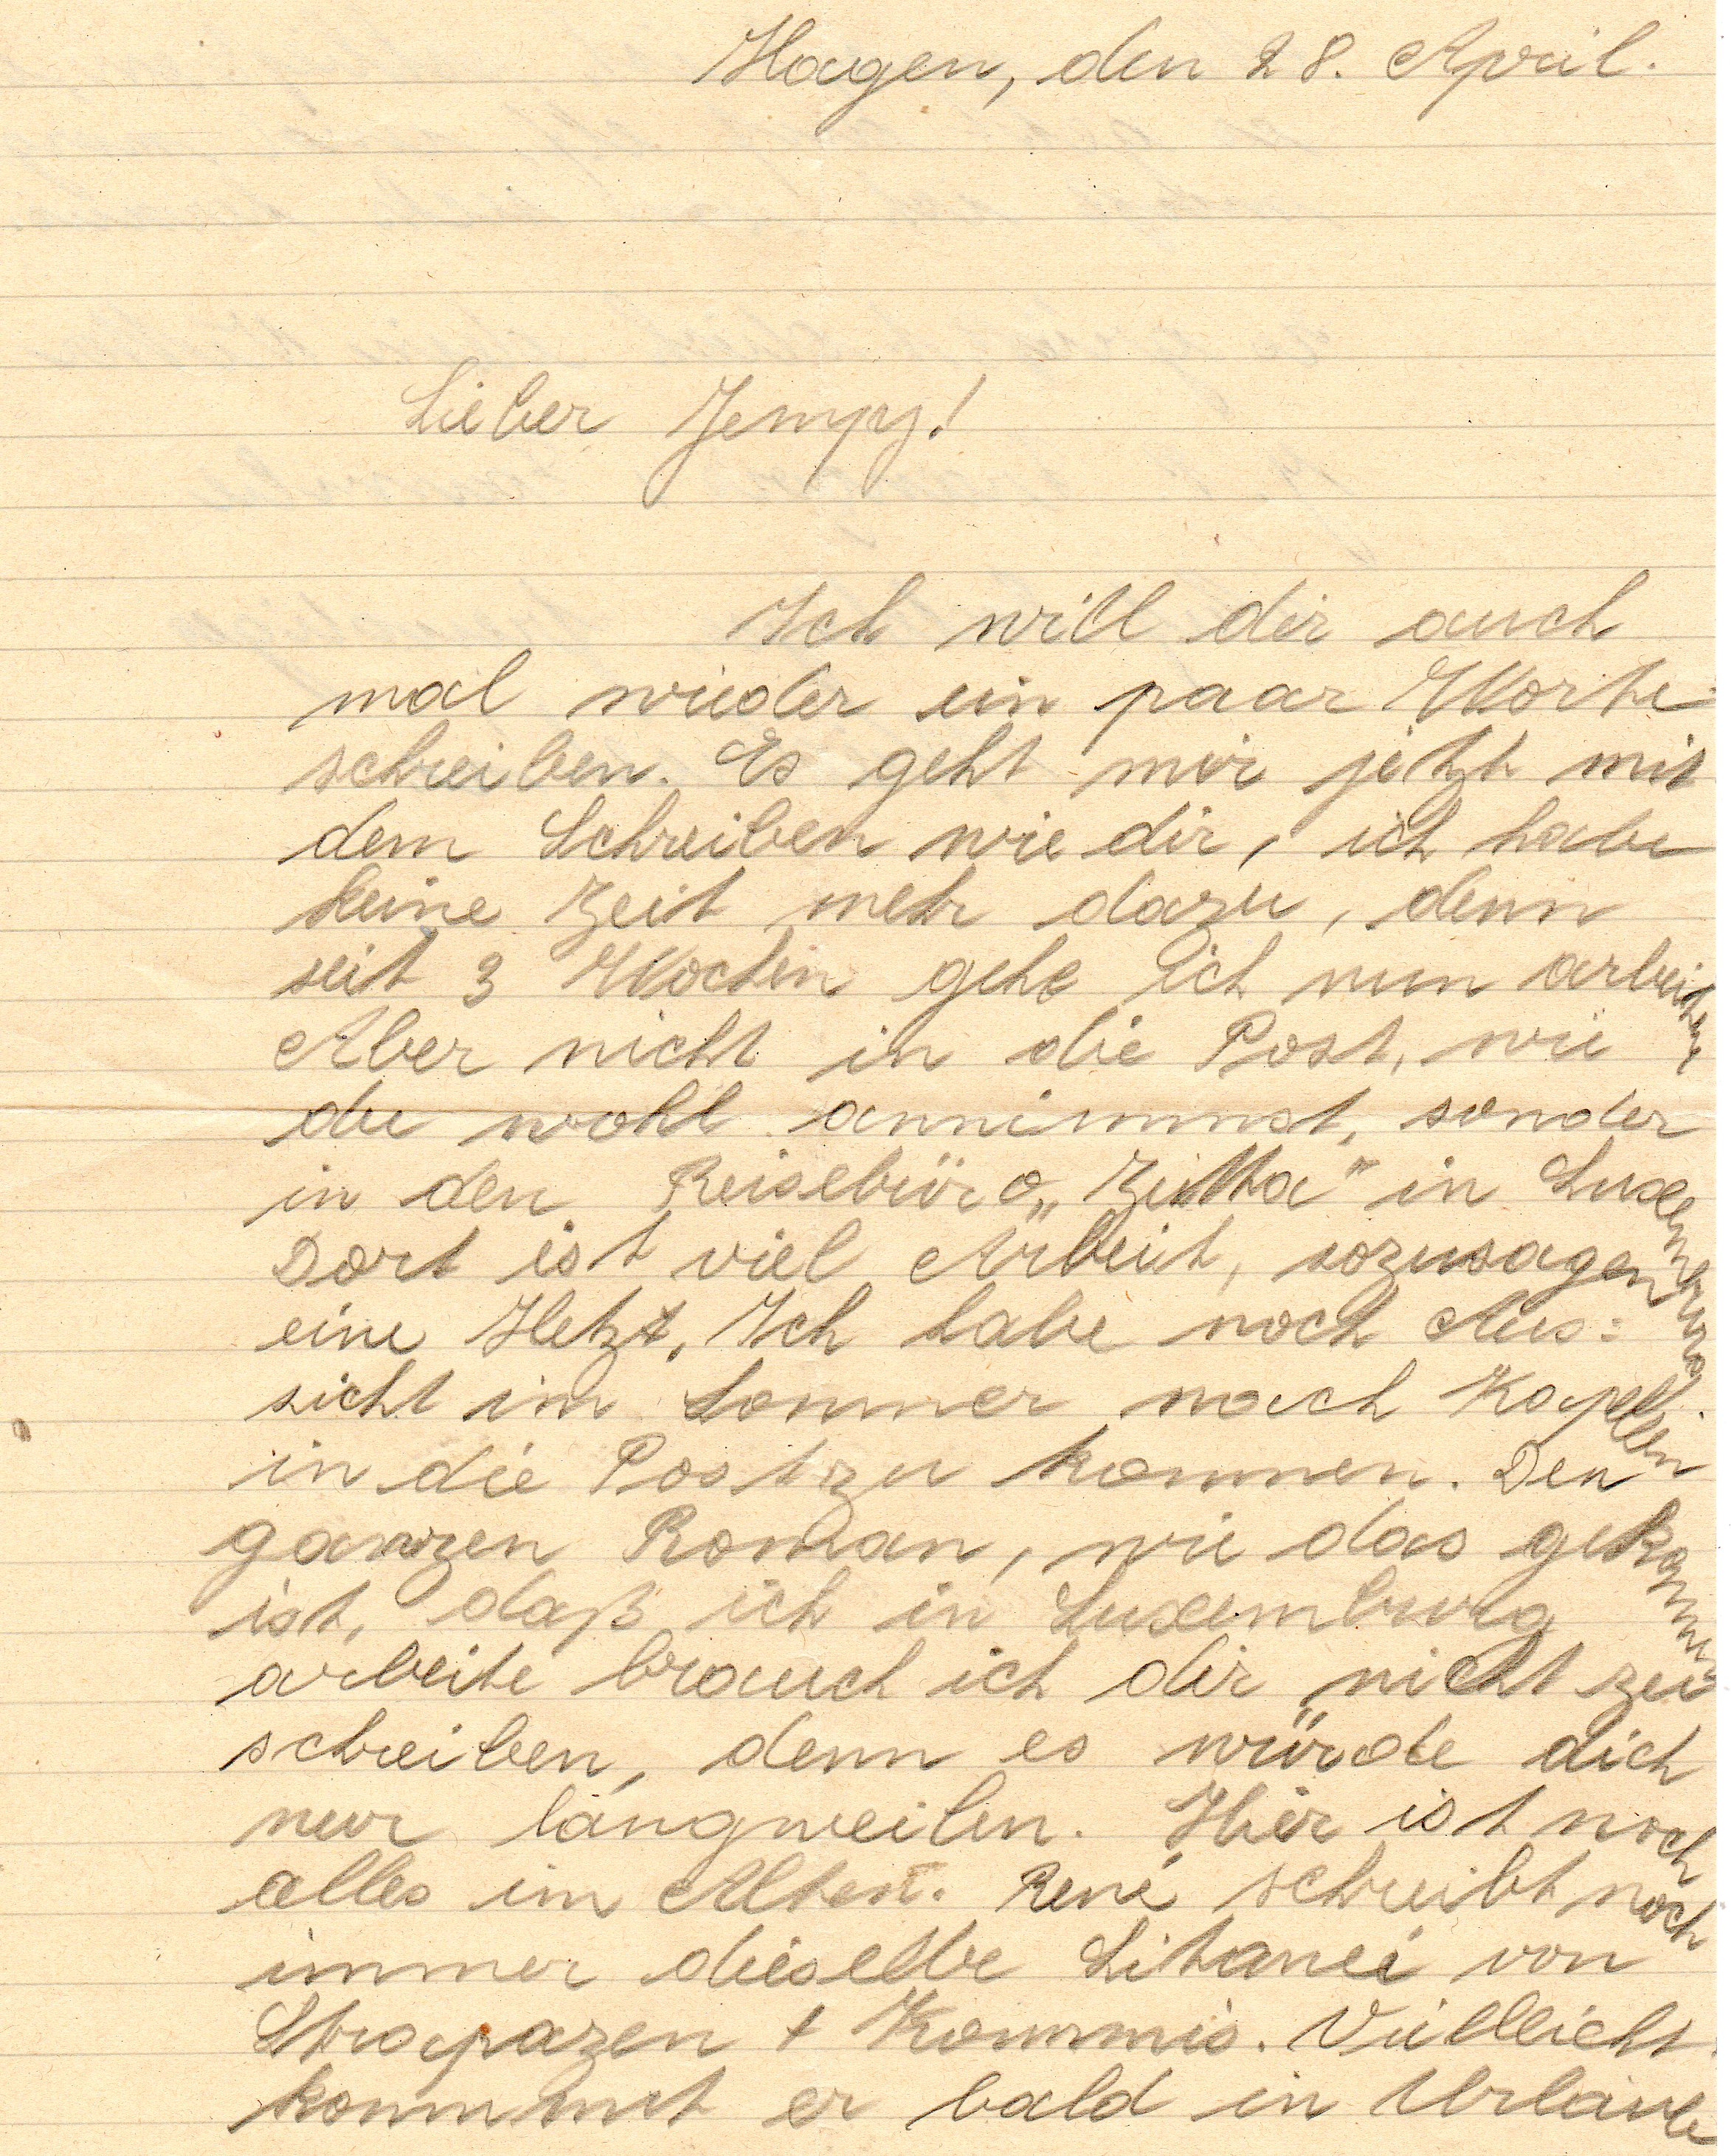 Hagen, den 28. April.
Lieber Jempy!
Ich will dir auch
mal wieder ein paar Worte
schreiben. Es geht mir jetzt mit
dem Schreiben wie dir, ich habe
keine Zeit mehr dazu, denn
seit 3 Wochen gehe ich nun arbeiten
Aber nicht in die Post, wie
du wohl annimmst, sonder
in den Reisebüro „Zitta" in Luxemburg
Dort ist viel Arbeit, sozusagen
eine Hetzt. Ich habe noch Aus:
sicht im Sommer nach Kapellen
in die Post zu kommen. Den
ganzen Roman, wie das gekommen
ist, daß ich in Luxemburg
arbeite brauch ich dir nicht zu
schreiben, denn es würde dich
nur langweilen. Hier ist noch
alles im Alten. René schreibt noch
immer dieselbe Litanei von
Strapazen + Kommis. Vielleicht
kommt er bald in Urlaub